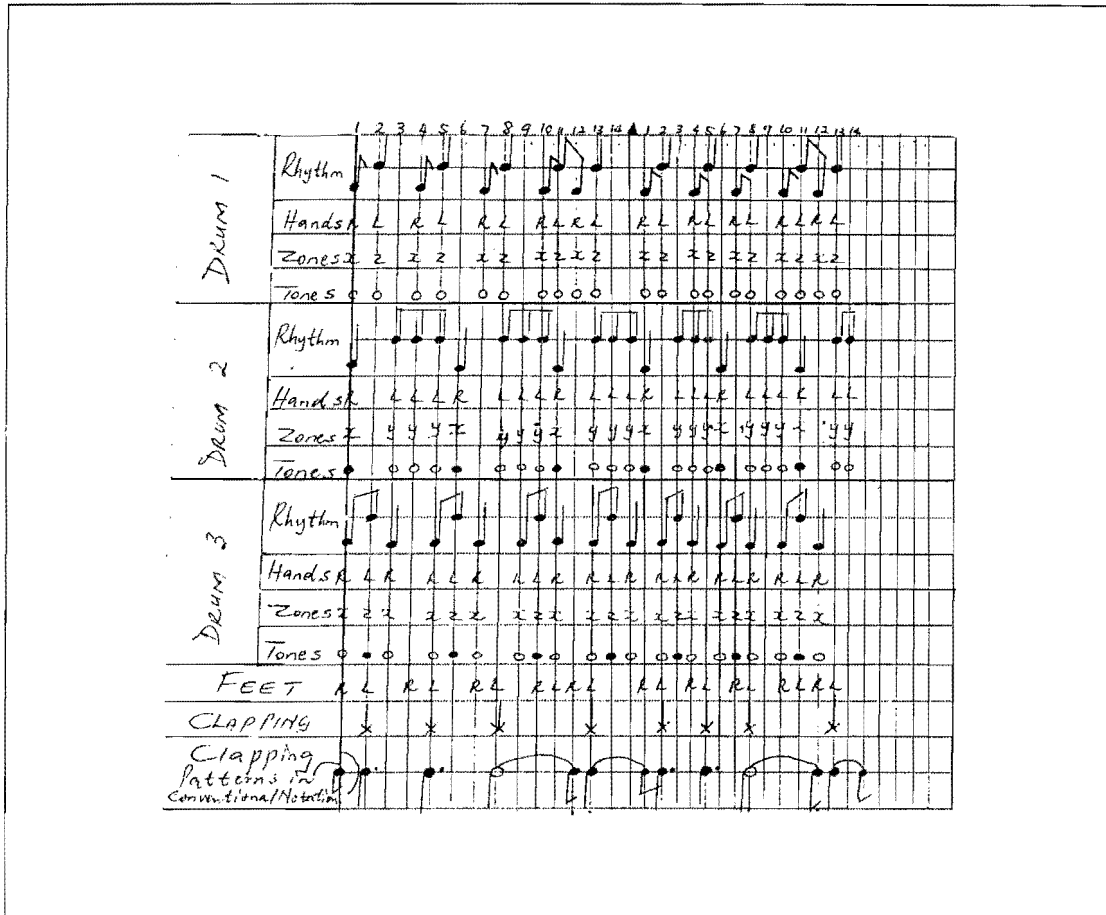 1 2 3 4 5 6 7 8 9 10 11 12 13 14 1 2 3 4 5 6 7 8 9 10 11 12 13 14
DRUM 1
Rhythm
Hands R L R L R L R L R L R L R L R L R L R L
Zones x z x z x z x z x z x z x z x z x z x z
Tones
DRUM 2
Rhythm
Hands R L L L R L L L R L L L R L L L R L L L R L L
Zones x y y y x y y y x y y y x y y y x y y y x y y
Tones
DRUM 3
Rhythm
Hands R L R R L R R L R R L R R L R R L R R L R
Zones x z x x z x x z x x z x x z x x z x x z x
Tones
FEET R L R L R L R L R L R L R L R L R L R L
CLAPPING x x x x x x x x
Clapping
Patterns in
Conventional Notation